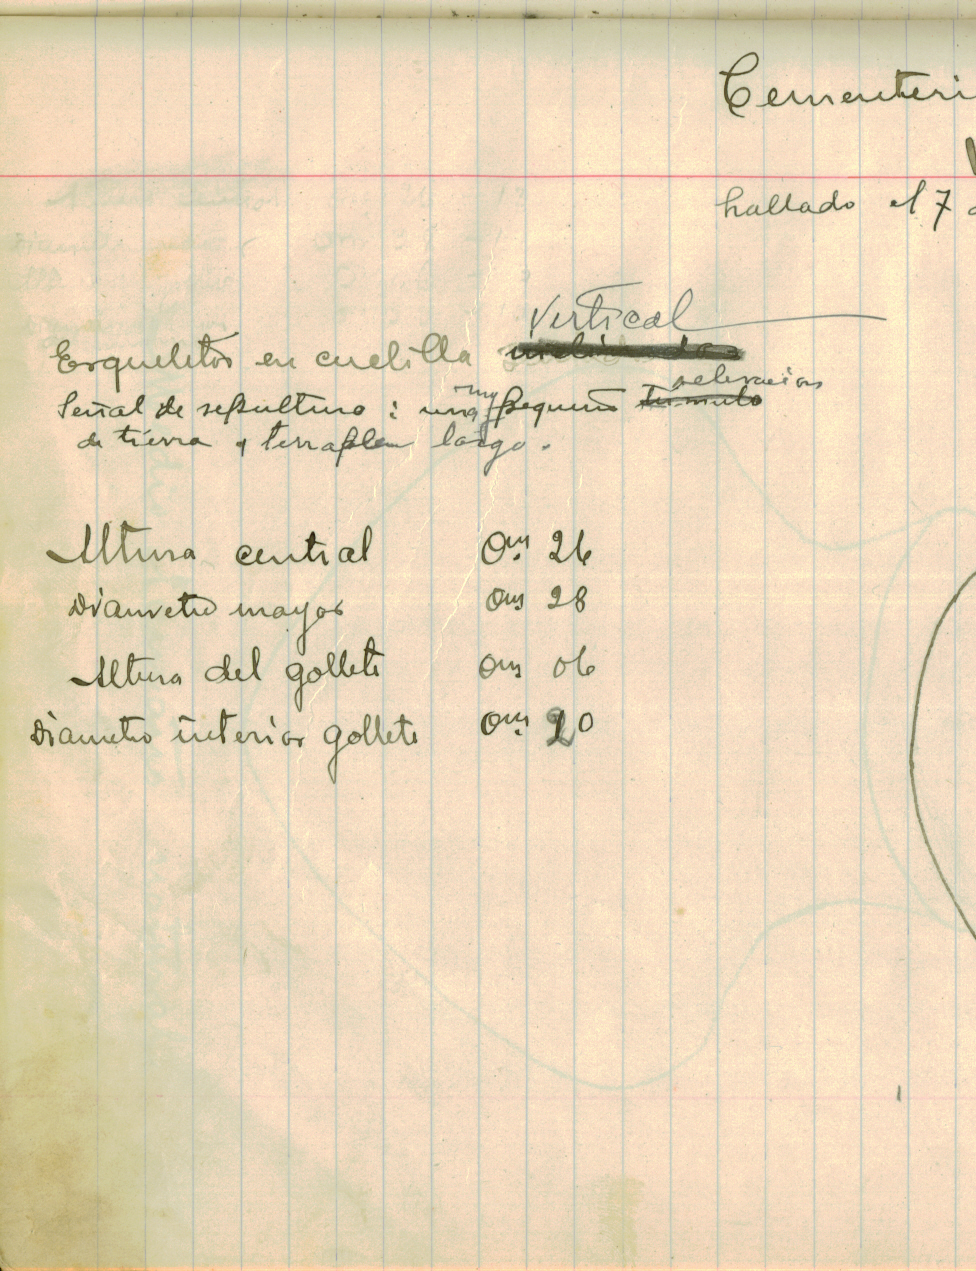 Cementeri
hallado el 7 d
Vertical
Esqueletos en cuclilla
Señal de sepultura : una muy pequeña elevacion túmulo
de tierra y terraplen largo.
Altura central 0m. 26
Diametro mayor 0m 28
Altura del gollete 0m 06
Diametro interior gollete 0m. 20